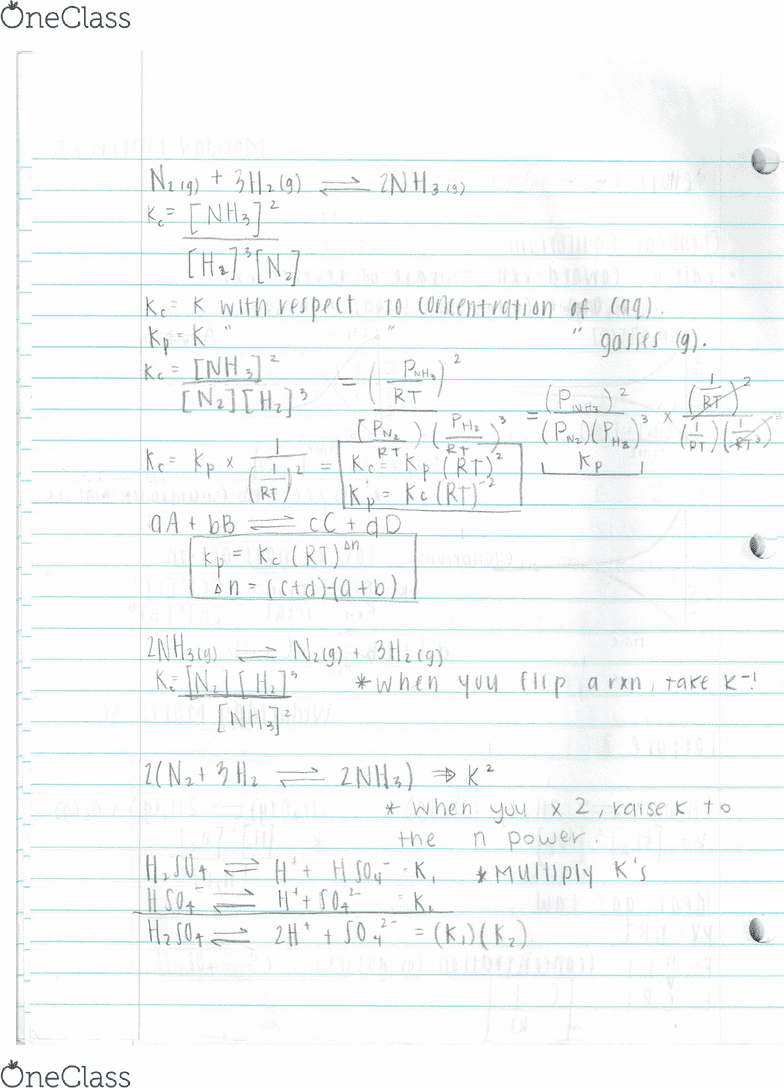 OneClass
N₂(g) + 3H₂(g) ⇌ 2NH₃(g)
Kc = [NH₃]² / [H₂]³[N₂]
Kc = K with respect to concentration of (aq).
Kp = K " " " gasses (g).
Kc = [NH₃]² / [N₂][H₂]³ = (P_NH₃/RT)² / [P_N₂/RT)(P_H₂/RT)³ = (P_NH₃)² / (P_N₂)(P_H₂)³ × (1/RT)² / (1/RT)(1/RT³) =
Kp
Kc = Kp × 1/(1/RT)² = Kc = Kp (RT)²
Kp = Kc (RT)⁻²
aA + bB ⇌ cC + dD
Kp = Kc (RT)^Δn
Δn = (c+d)-(a+b)
2NH₃(g) ⇌ N₂(g) + 3H₂(g)
Kc = [N₂][H₂]³ / [NH₃]² *when you flip a rxn, take K⁻¹
2(N₂ + 3H₂ ⇌ 2NH₃) ⇒ K²
* when you x 2, raise K to
the n power.
H₂SO₄ ⇌ H⁺ + HSO₄⁻ · K₁ *Multiply K's
HSO₄⁻ ⇌ H⁺ + SO₄²⁻ = K₂
H₂SO₄ ⇌ 2H⁺ + SO₄²⁻ = (K₁)(K₂)
OneClass